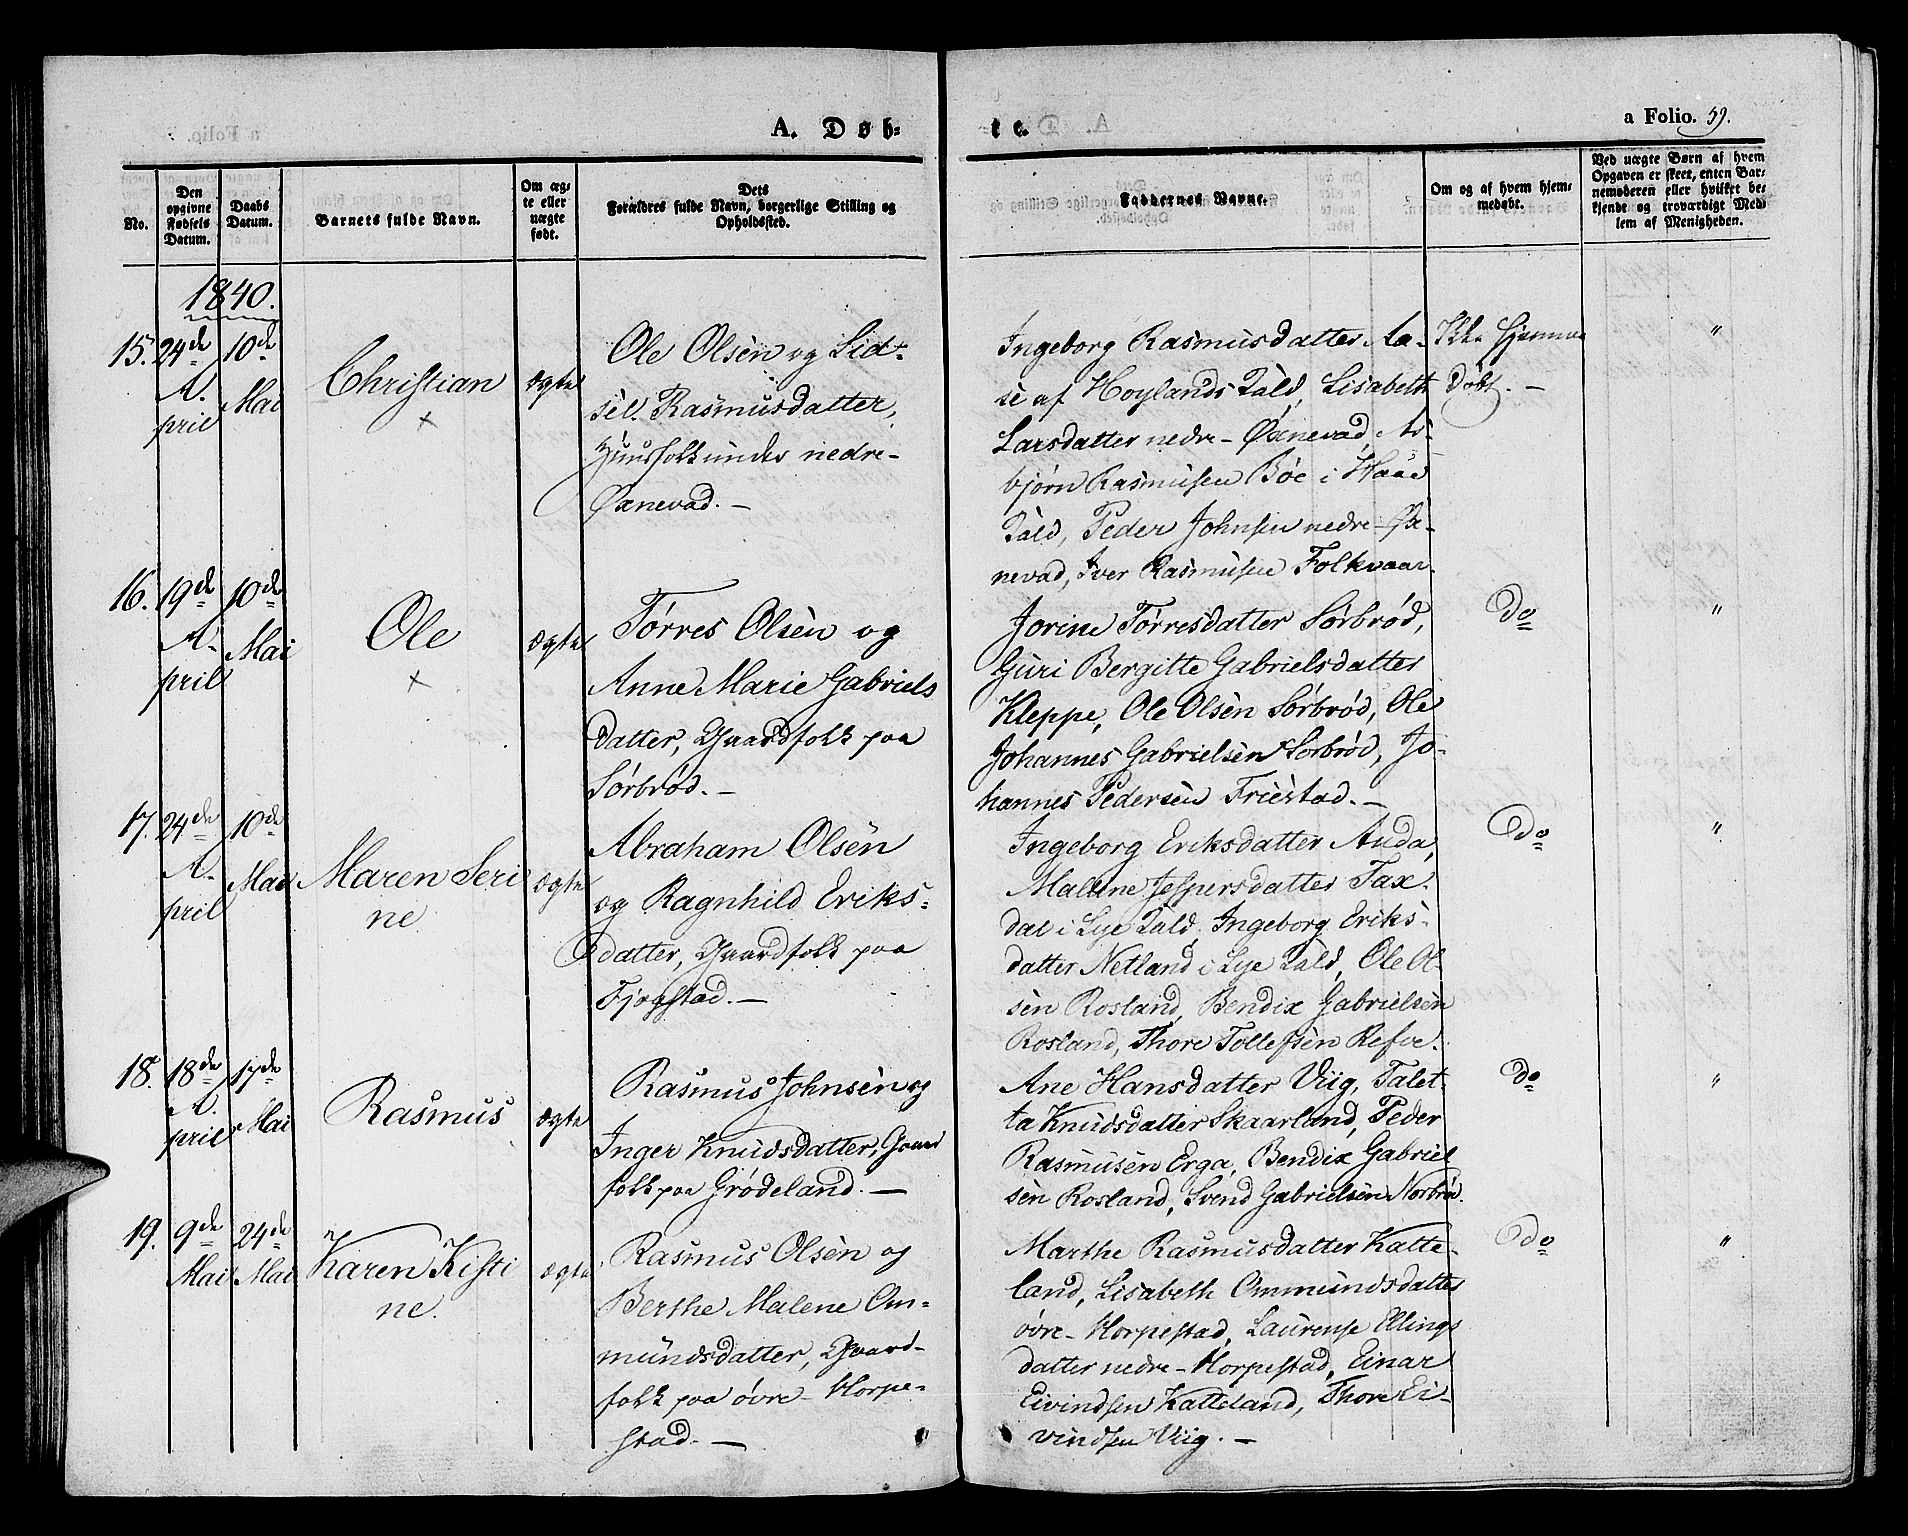 A. Døb-
te.
a Folio. 59.
No.
Den opgivne Fødsels Datum.
Daabs Datum.
Barnets fulde Navn.
Om ægte eller uægte født.
Dets Forældres fulde Navn, borgerlige Stilling og Opholdssted.
Faddernes Navne.
Om og af hvem hjemmedøbt.
Ved uægte Børn af hvem Opgaven er skeet, enten Barnemoderen eller hvilket bekjendt og troværdigt Medlem af Menigheden.
1840.
15. 24de A-
pril
10de
Mai
Christian
×
ægte
Ole Olsen og Sid-
sel Rasmusdatter,
Huusfolk under nedre-
Øxnevad. —
Ingeborg Rasmusdatter Aa-
se af Hoylands Præld, Lisabeth
Larsdatter nedre- Øxnevad, As-
bjørn Rasmusen Bøe i Haae
Præld, Peder Johnsen nedre- Øx-
nevad, Iver Rasmusen Folkvaar.
Ikke Hjemme
døbt. —
"
16. 19de
A-
pril
10de
Mai
Ole
×
ægte
Tørres Olsen og
Anne Marie Gabriels
datter, Gaardfolk paa
Sørbrød. —
Jorine Tørresdatter Sørbrød,
Guri Bergitte Gabrielsdatter
Kleppe, Ole Olsen Sørbrød, Ole
Johannes Gabrielsen Sørbrød, Jo-
hannes Pedersen Friestad. —
do
"
17. 24de
A-
pril
10de
Mai
Maren Seri
ne
ægte
Abraham Olsen
og Ragnhild Eriks-
datter, Gaardfolk paa
Fjogstad. —
Ingeborg Eriksdatter Auda,
Malene Jespersdatter Tax-
dal i Lye Præld, Ingeborg Eriks-
datter Netland i Lye Præld, Ole Ol-
sen Rosland, Bendix Gabrielsen
Rosland, Thore Tollefsen Refve.
do
"
18. 18de
A-
pril
17de
Mai
Rasmus
ægte
Rasmus Johnsen og
Inger Knudsdatter, Gaard
folk paa Grødeland. —
Ane Hansdatter Viig, Talet-
ta Knudsdatter Skaarland, Peder
Rasmusen Erga, Bendix Gabriel
sen Rosland, Svend Gabrielsen Norbrø.
do
"
19. 9de
Mai
24de
Mai
Karen Kisti
ne.
ægte
Rasmus Olsen og
Berthe Malene Om-
mundsdatter, Gaard-
folk paa øvre- Horpe-
stad. —
Marthe Rasmusdatter Katte-
land, Lisabeth Ommundsdatter
øvre- Horpestad, Laurense Ellings
datter nedre- Horpestad, Einar
Eivindsen Katteland, Thore Ei-
vindsen Viig. —
do
"